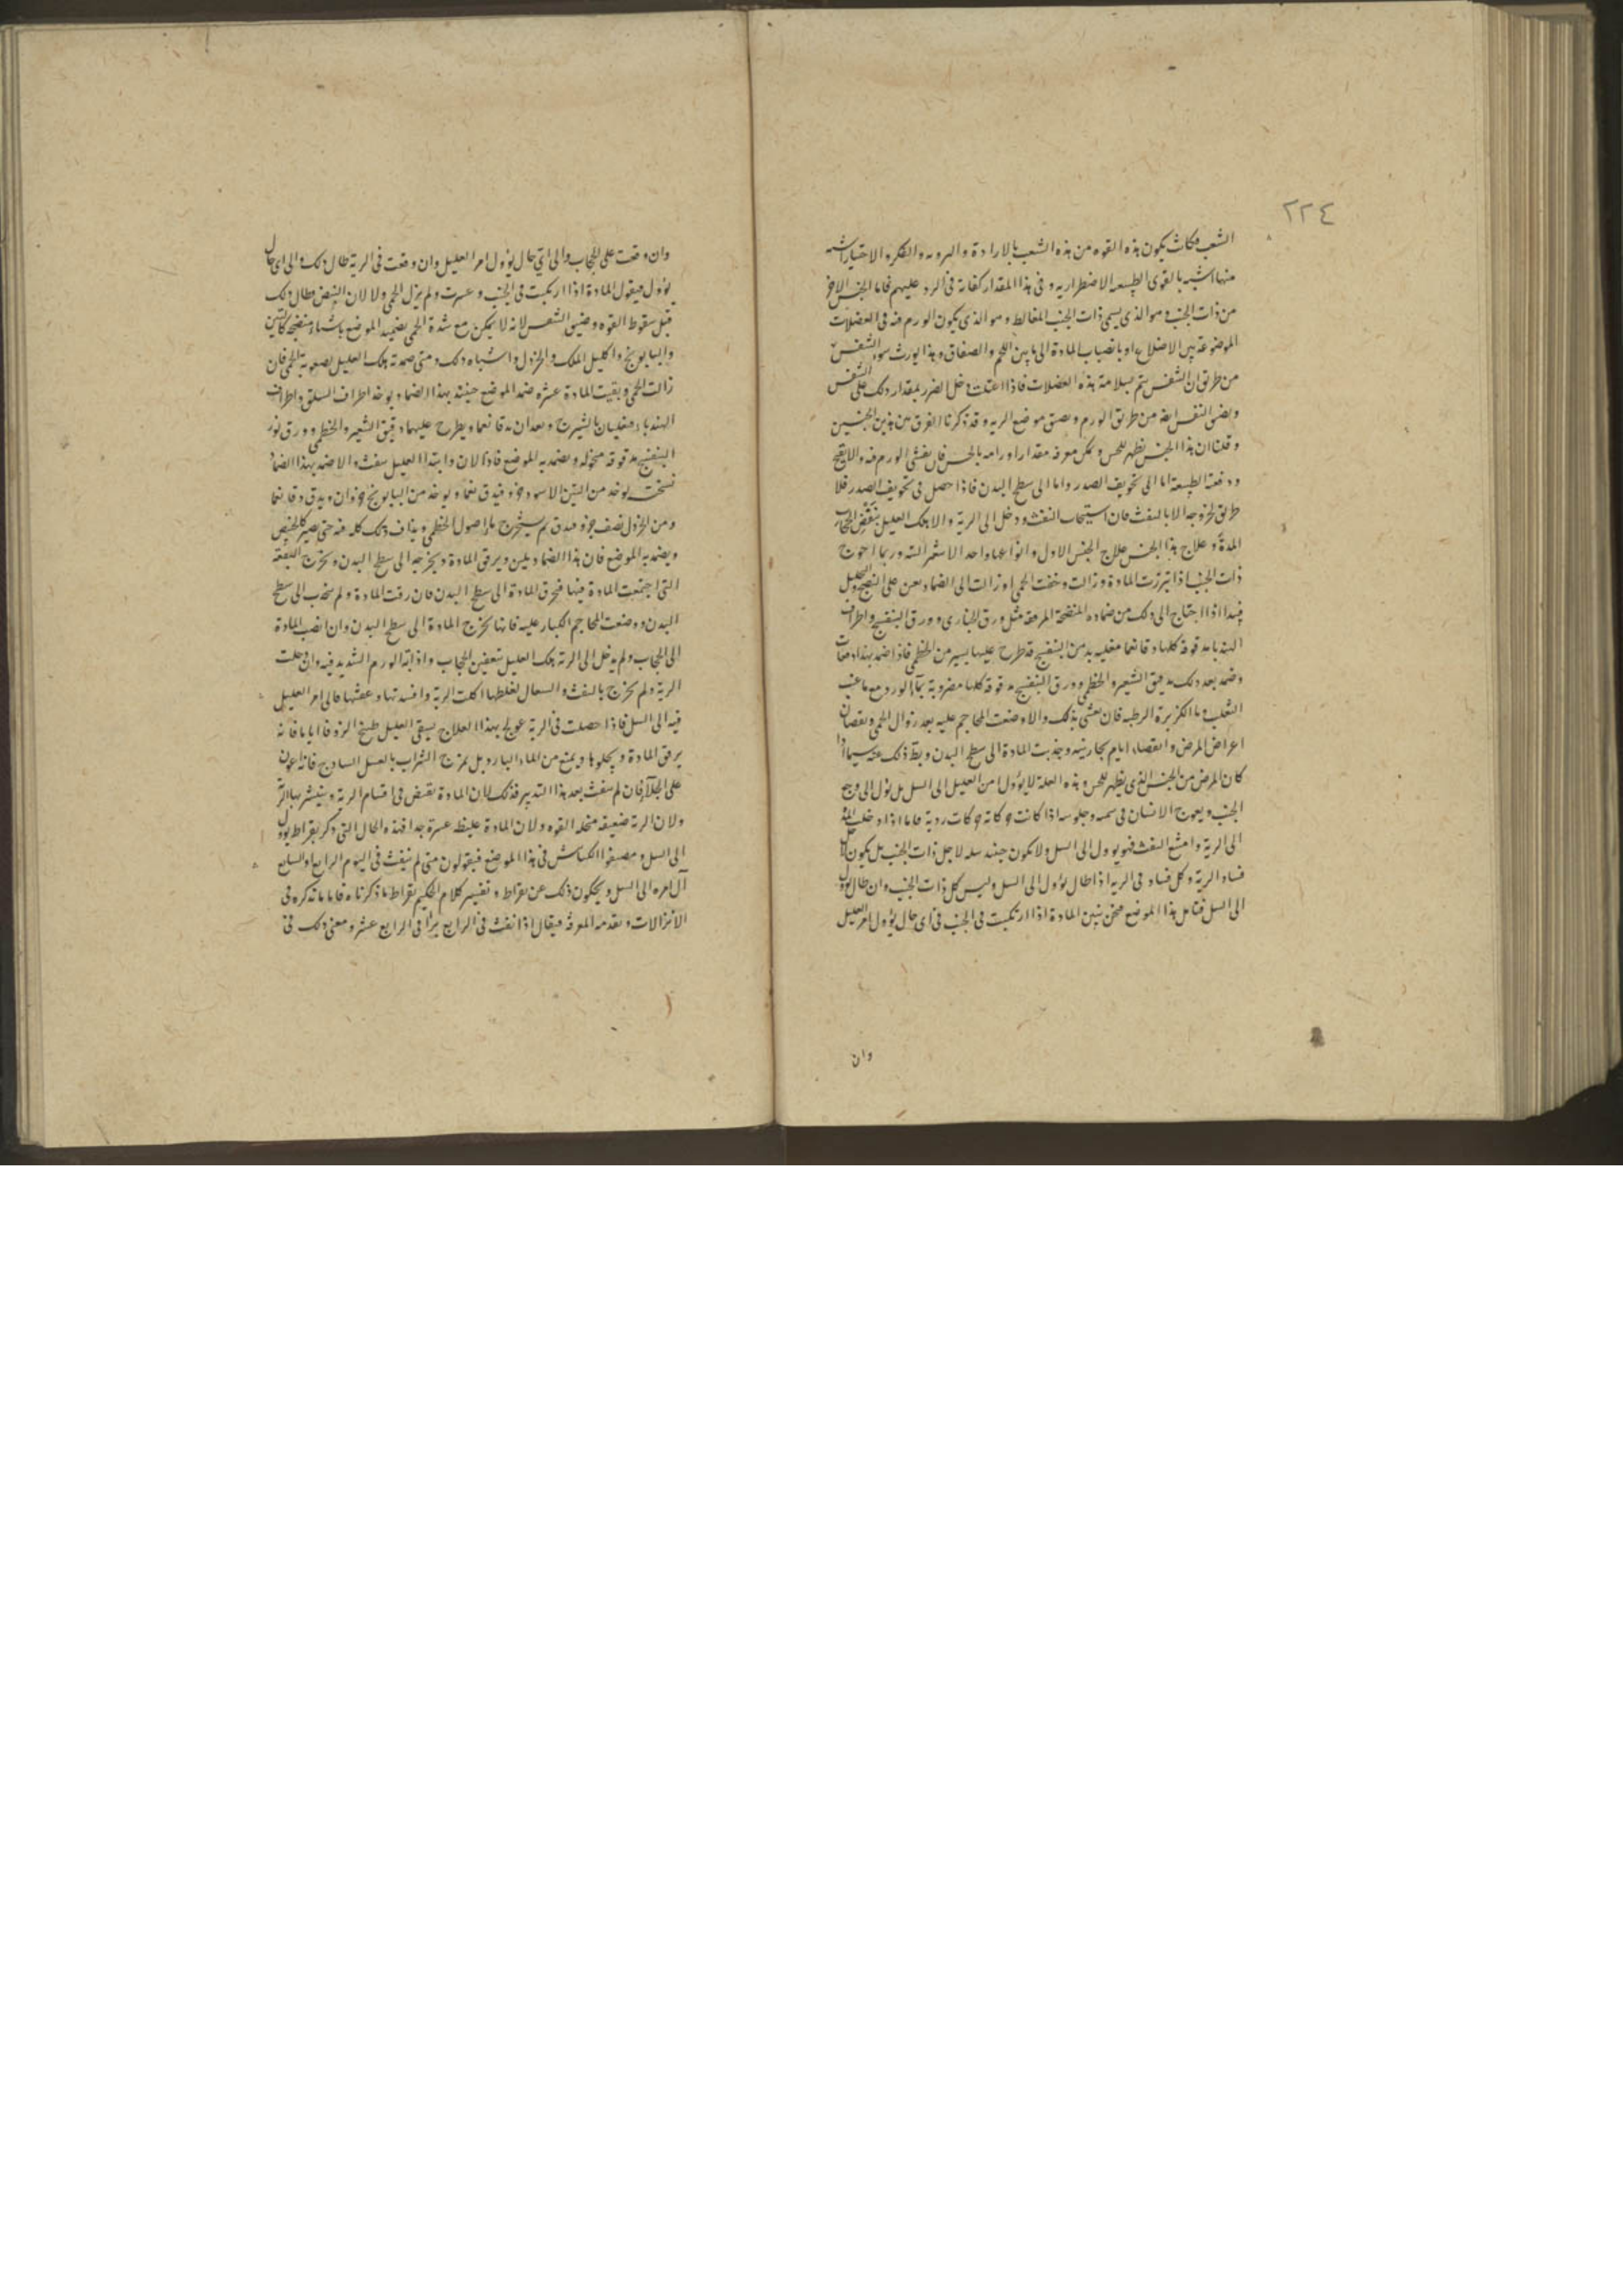 ٢٢٤
الشعب فكانت يكون هذه القوه من هذه الشعب بالارادة والرويه والفكره الاختيار اشبه
منها اشبه بالقوى الطبيعه الاضطراريه وفى هذا المقدار كفاية فى الرد عليهم فاما الجنس الاخر
من ذات الجنب وهو الذى يسمى ذات الجنب المغالط وهو الذى يكون الورم فيه فى العضلات
الموضوعة بين الاضلاع او بانصباب المادة الى ما بين اللحم والصفاق وهذا يورث سوء التنفس
من طريق ان التنفس يتم بسلامة هذه العضلات فاذا اعتلت دخل الضرر بمقدار ذلك على التنفس
ويضيق النفس ايضا من طريق الورم ويضيق موضع الريه وقد ذكرنا الفرق بين هذين الجنسين
وقلنا ان هذا الجنس يظهر للحس ويمكن معرفة مقدار اورامه بالحس فان يفشى الورم فيه والا يقيح
ودفعته الطبيعة اما الى تجويف الصدر واما الى سطح البدن فاذا حصل فى تجويف الصدر فلا
طريق لخروجه الا بالنفث فان استجاب النفث ودخل الى الرية والا هلك العليل بتعفن الحجاب
المدة وعلاج هذا الجنس علاج الجنس الاول وانواعها واحد الا سنمر البته وربما احوج
ذات الجنب اذا تبررت المادة وزالت وخفت الحمى او زالت الى الضماد يعين على النضج والتحليل
فيبدا اذا احتاج الى ذلك من ضماده المنضجة المرخية مثل ورق الخبازى وورق البنفسج واطراف
الهندبا مدقوقة كلها دقا نعما مغليه بدهن البنفسج قد طرح عليها يسير من الخطمى فاذا ضمد بهذا دفعات
وضمد بعد ذلك بدقيق الشعير والخطمى وورق البنفسج مدقوقة كلها مضروبة بماء الورد مع ما عنب
الثعلب وما الكزبرة الرطبه فان يفشى بذلك والا وضعت المحاجم عليه بعد زوال الحمى ونقصان
اعراض المرض وانقضاء ايام بحارينه وجذبت المادة الى سطح البدن وبط ذلك عنه سيما اذا
كان المرض من الجنس الذى يظهر للحس وهذه العلة لا يؤول امر العليل الى السل بل يؤل الى وجع
الجنب ويعوج الانسان فى مشيه وجلوسه اذا كانت حركاته حركات رديه فاما اذا دخلت المادة
الى الرية وامتنع النفث فهو يوول الى السل ولا يكون حينئذ سله لاجل ذات الجنب بل يكون لاجل
فساد الرية وكل فساد فى الريه اذا طال يؤول الى السل وليس كل ذات الجنب وان طال يؤول
الى السل فتامل هذا الموضع فنحن نبين المادة اذا ارتكبت فى الجنب فى اى حال يؤول امر العليل
وان
وان وقعت على الحجاب والى اى حال يؤول امر العليل وان وقعت فى الرية طال ذلك والى اى حال
يؤول فيقول المادة اذا ارتكبت فى الجنب وعسرت ولم يزل الحمى ولا لان النبض وطال ذلك
قبل سقوط القوه وضيق التنفس لانه لا يمكن مع شدة الحمى تضميد الموضع باشياء منضجة كالتين
والبابونج واكليل الملك والخردل واشباه ذلك ومتى ضمدته هلك العليل بصعوبة الحمى فان
زالت الحمى وبقيت المادة عسره ضمد الموضع حينئذ بهذا الضماد يوخذ اطراف السلق واطراف
الهندباء مغليان بالشيرج وبعد ان يدقا نعما ويطرح عليهما دقيق الشعير والخطمى وورق نور
البنفسج مدقوقة منخوله ويضمد به الموضع فاذا لان وابتدا العليل ينفث والا ضمد بهذا الضماد
نسخته يوخذ من التين الاسود جزو فيدق نعما ويوخذ من البابونج جزوان ويدق دقا نعما
ومن الخردل نصف جزو فيدق ثم يستخرج ماء اصول الخطمى ويذاف ذلك كله فيه حتى يصير كالخبيص
ويضمد به الموضع فان هذا الضماد يلين ويرقق المادة ويخرجه الى سطح البدن ويخرج البقعة
التى اجتمعت المادة فيها فيخرق المادة الى سطح البدن فان رقت المادة ولم ينجذب الى سطح
البدن ووضعت المحاجم الكبار عليه فانها تخرج المادة الى سطح البدن وان انصب المادة
الى الحجاب ولم يدخل الى الرية هلك العليل بتعفين الحجاب واذابة الورم الشديد فيه وان دخلت
الرية ولم يخرج بالنفث والسعال لغلظها اكلت الرية وافسدتها وعفنتها فال امر العليل
فيه الى السل فاذا حصلت فى الرية عولج بهذا العلاج يسقى العليل طبيخ الزوفا اياما فانه
يرقق المادة ويجلوها ويمنع من الماء البارد بل يمزج الشراب بالعسل الساذج فانه اعون
على الجلاء فان لم ينفث بعد هذا التدبير فذلك لان المادة يقرض فى اقسام الرية وينتشر بها الاثر
ولان الرية ضعيفه منحله القوه ولان المادة غليظة عسرة جدا فهذه الحال التى ذكر بقراط يؤول
الى السل ومصنفوا الكناش فى هذا الموضع فيقولون متى لم ينفث فى اليوم الرابع او السابع
آل امره الى السل ويحكون ذلك عن بقراط وتفسير كلام الحكيم بقراط ما ذكرناه فاما ما نذكره فى
الانزالات وتقدمة المعرفة فيقال اذا نفث فى الرابع برأ فى الرابع عشر ومعنى ذلك فى